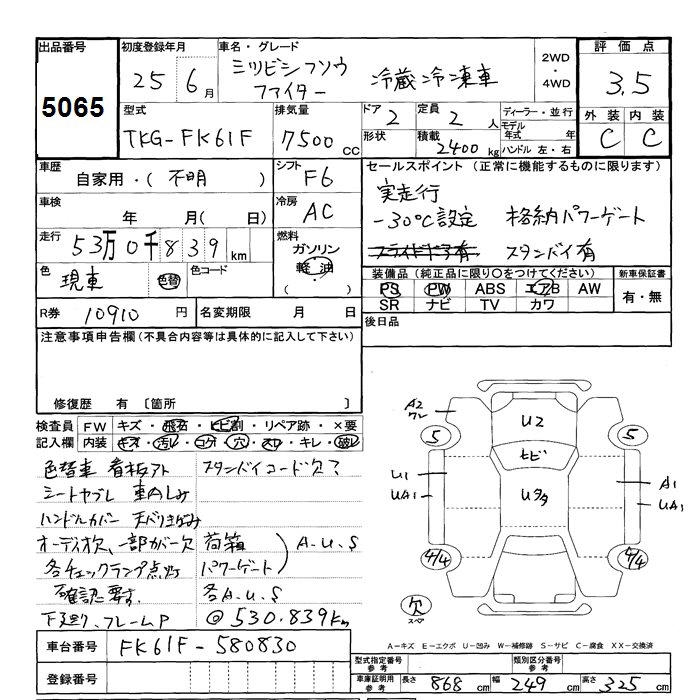 出品番号 初度登録年月 車名・グレード 2WD・4WD 評価点
5065 25 6月 ミツビシフソウ ファイター 冷蔵冷凍車 3.5
型式 排気量 ドア 定員 ディーラー・並行 外装 内装
TKG-FK61F 7500cc 2 2人 モデル年式 年 C C
形状 積載 2400kg ハンドル 左・右
車歴 シフト セールスポイント(正常に機能するものに限ります)
自家用・(不明) F6 実走行
車検 冷房 -30℃設定 格納パワーゲート
年 月(日) AC スタンバイ有
走行 燃料
53万0千839km ガソリン
軽油
( )
色 色替 色コード 装備品(純正品に限り○をつけてください) 新車保証書
現車 PS PW ABS エアB AW 有・無
SR ナビ TV カワ
R券 10910円 名変期限 月 日 後日品
注意事項申告欄(不具合内容等は具体的に記入して下さい)
修復歴 有〔箇所 〕
検査員記入欄 FW キズ・飛石・ヒビ割・リペア跡・×要
内装 キズ・汚レ・コゲ・穴・スレ・キレ・破レ
色替車 看板アト スタンバイコード欠?
シートヤブレ 車内しみ
ハンドルカバー 天バリきばみ
オーディオ欠、一部カバー欠 荷箱 A.U.S
各チェックランプ点灯 パワーゲート
確認要す 各A.U.S
下廻り、フレームP @530.839km
A2 ワレ
5 5
U2
ヒビ
U1
UA1
A1
UA1
4/4 4/4
欠 スペア
A-キズ E-エクボ U-凹み W-補修跡 S-サビ C-腐食 XX-交換済
車台番号 FK61F-580830
登録番号
型式指定番号 参考 類別区分番号 参考
車庫証明用 参考 長さ 868cm 幅 249cm 高さ 325cm